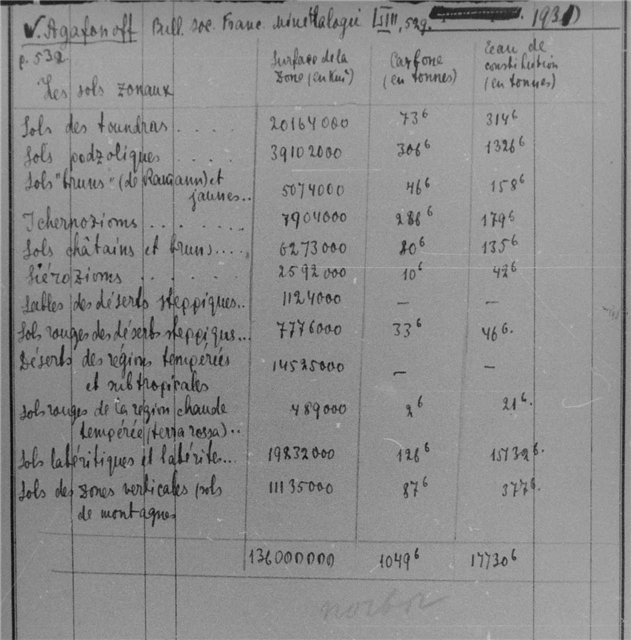 V. Agafonoff Bull. Soc. Franc. Minéralogie LIII, 529, 1931)
p. 532
Les sols zonaux Surface de la Zone (en km²) Carbone (en tonnes) Eau de constitution (en tonnes)
Sols des toundras . . . . 20164000 73⁶ 314⁶
Sols podzoliques . . . . 39102000 306⁶ 1326⁶
Sols "bruns" (de Ramann) et
jaunes.. 5074000 46⁶ 158⁶
Tchernozioms . . . . . . . 7904000 286⁶ 179⁶
Sols châtains et bruns.... 6273000 80⁶ 135⁶
Siérozioms . . . . . . . 2592000 10⁶ 42⁶
Sables des déserts steppiques.. 1124000 — —
Sols rouges des déserts steppiqus... 7776000 33⁶ 46⁶.
Déserts des régions tempérées
et subtropicales 14525000 — —
Sols rouges de la région chaude
tempérée (terra rossa) .. 489000 2⁶ 21⁶.
Sols latéritiques et latérite... 19832000 126⁶ 15132⁶.
Sols des zones verticales, sols
de montagnes 11135000 87⁶ 377⁶.
136000000 1049⁶ 17730⁶